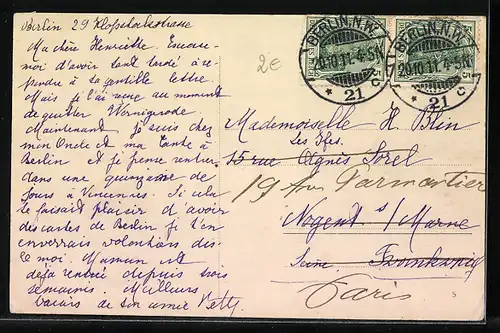 Berlin 29 Klopstockstrasse
Ma chère Henriette. Excuse-
moi d'avoir tant tardé à re-
pondre à ta gentille lettre
Mais je l'ai reçue au moment
de quitter Wernigerode
Maintenant je suis chez
mon Oncle et ma tante à
Berlin et je pense rentrer
dans une quinzaine de
jours à Vincennes. Si cela
te faisait plaisir d'avoir
des cartes de Berlin je t'en
enverrais volontiers dis-
le moi. Maman est
déjà rentrée depuis trois
semaines. Meilleurs
baisers de ton amie Betty
2€
BERLIN. N.W.
20.10.11. 4-5N
* 21 c
BERLIN. N.W.
20.10.11. 4-5N
* 21 c
5
Mademoiselle H. Blin
15 rue Agnès Sorel
19 Ave Parmentier
Nogent s/ Marne
Seine Frankreich
Paris